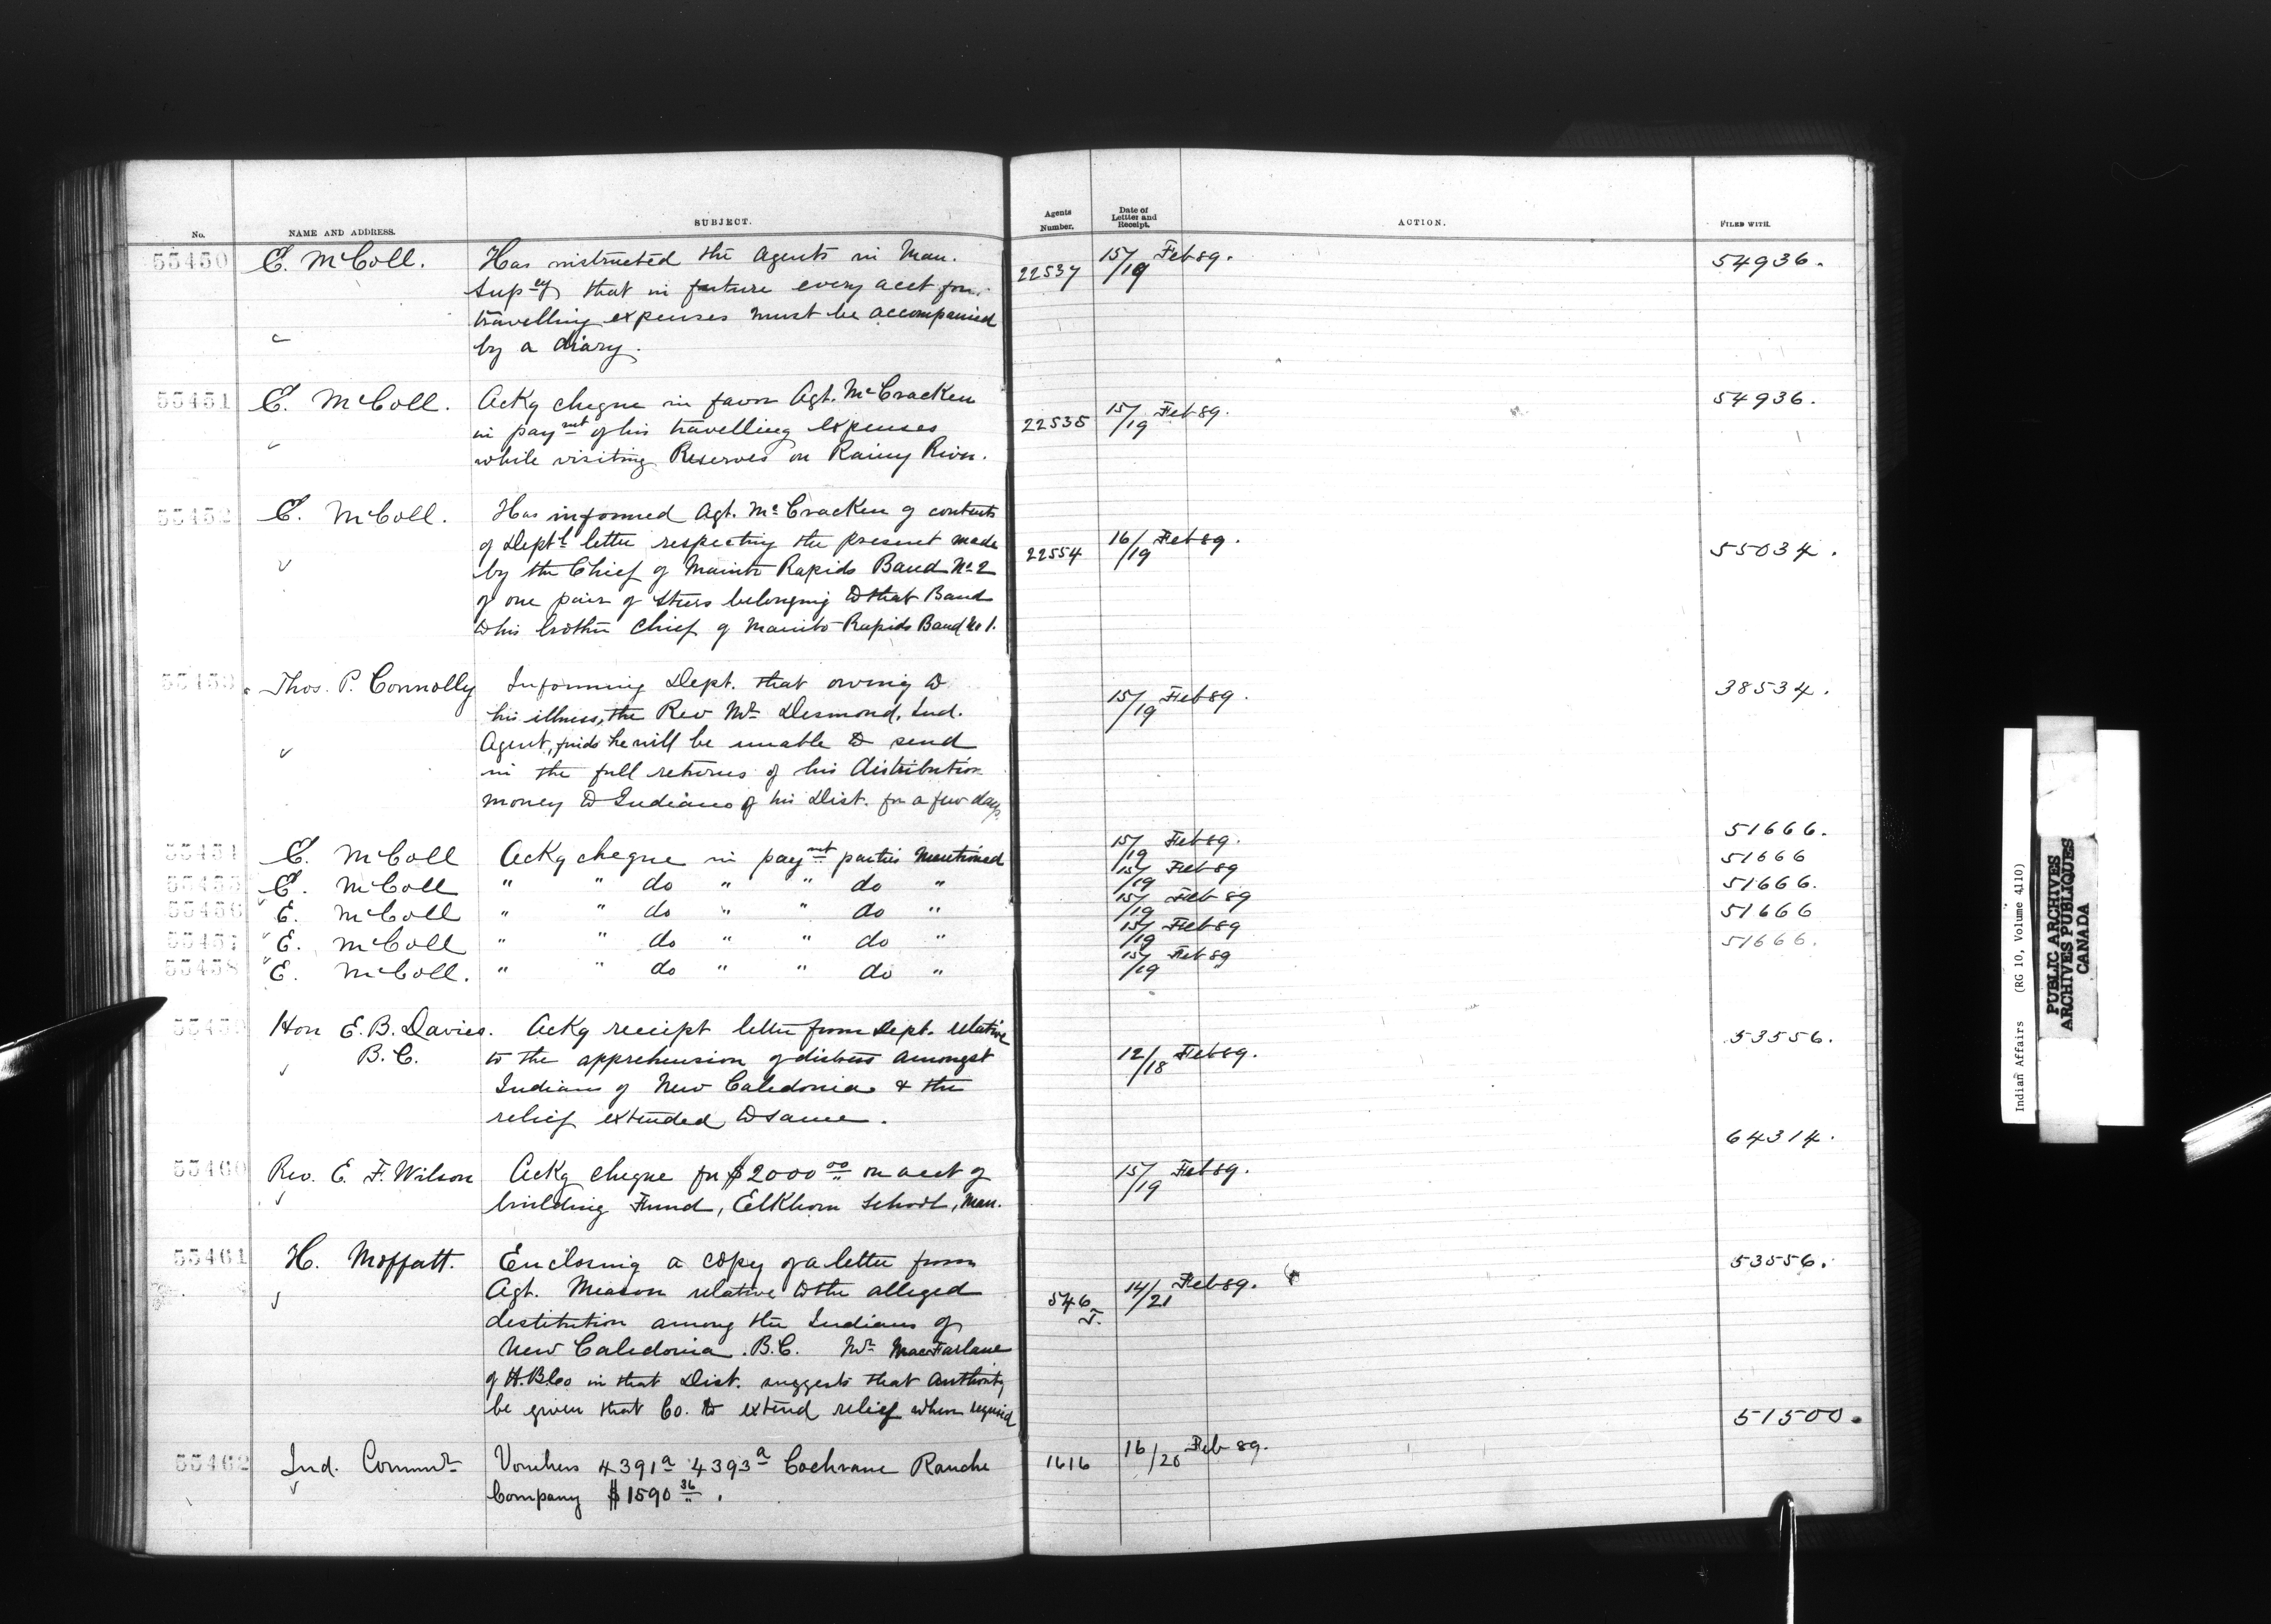 No.
NAME AND ADDRESS.
SUBJECT.
Agents Number.
Date of Letter and Receipt.
ACTION.
FILED WITH.
55450 E. McColl. Has instructed the Agents in Man. 22537 15/19 Feb 89. 54936.
Supcy that in future every acct for
travelling expenses must be accompanied
by a diary.
55451 E. McColl. Ackg cheque in favor Agt. McCracken 22535 15/19 Feb 89. 54936.
in paymt of his travelling expenses
while visiting Reserves on Rainy River.
55452 E. McColl. Has informed Agt. McCracken of contents
of Deptl letter respecting the present made 22554 16/19 Feb 89. 55034.
by the Chief of Manito Rapids Band No 2
of one pair of steers belonging to that Band
to his brother Chief of Manito Rapids Band No 1.
55453 Thos. P. Connolly Informing Dept. that owing to 15/19 Feb 89. 38534.
his illness, the Rev Mr Desmond, Ind.
Agent, finds he will be unable to send
in the full returns of his distribution
money to Indians of his Dist. for a few days
55454 E. McColl Ackg cheque in paymt parties mentioned 15/19 Feb 89. 51666.
55455 E. McColl " " do " " do " 15/19 Feb 89 51666
55456 E. McColl " " do " " do " 15/19 Feb 89 51666.
55457 E. McColl " " do " " do " 15/19 Feb 89 51666
55458 E. McColl. " " do " " do " 15/19 Feb 89 51666.
55459 Hon E. B. Davies. Ackg receipt letter from Dept. relative 53556.
B.C. to the apprehension of distress amongst 12/18 Feb 89.
Indians of New Caledonia & the
relief extended to same.
55460 Rev. E. F. Wilson Ackg cheque for $2000 00 on acct of 15/19 Feb 89. 64314.
building Fund, Elkhorn School, Man.
55461 H. Moffatt. Enclosing a copy of a letter from 53556.
Agt. Meason relative to the alleged 546 J. 14/21 Feb 89.
destitution among the Indians of
New Caledonia. B.C. Mr MacFarlane
of H.B.Co in that Dist. suggests that authority
be given that Co. to extend relief when required
55462 Ind. Commr Vouchers 4391a 4393a Cochrane Ranche 1616 16/20 Feb 89. 51500.
Company $1590 36.
Indian Affairs (RG 10, Volume 4110)
PUBLIC ARCHIVES
ARCHIVES PUBLIQUES
CANADA